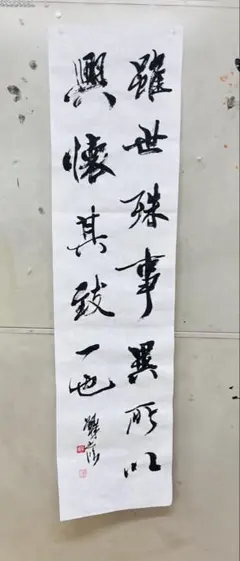 雖世殊事異所以
興懷其致一也